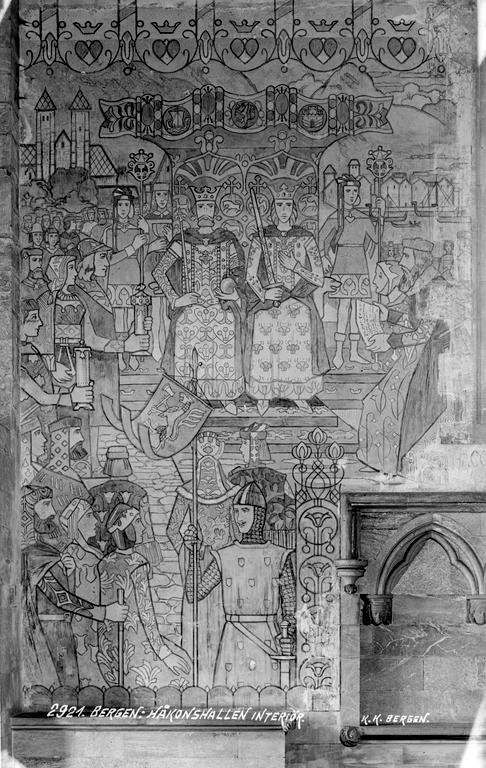 2921. BERGEN: HÅKONSHALLEN INTERIØR.
K.K. BERGEN.